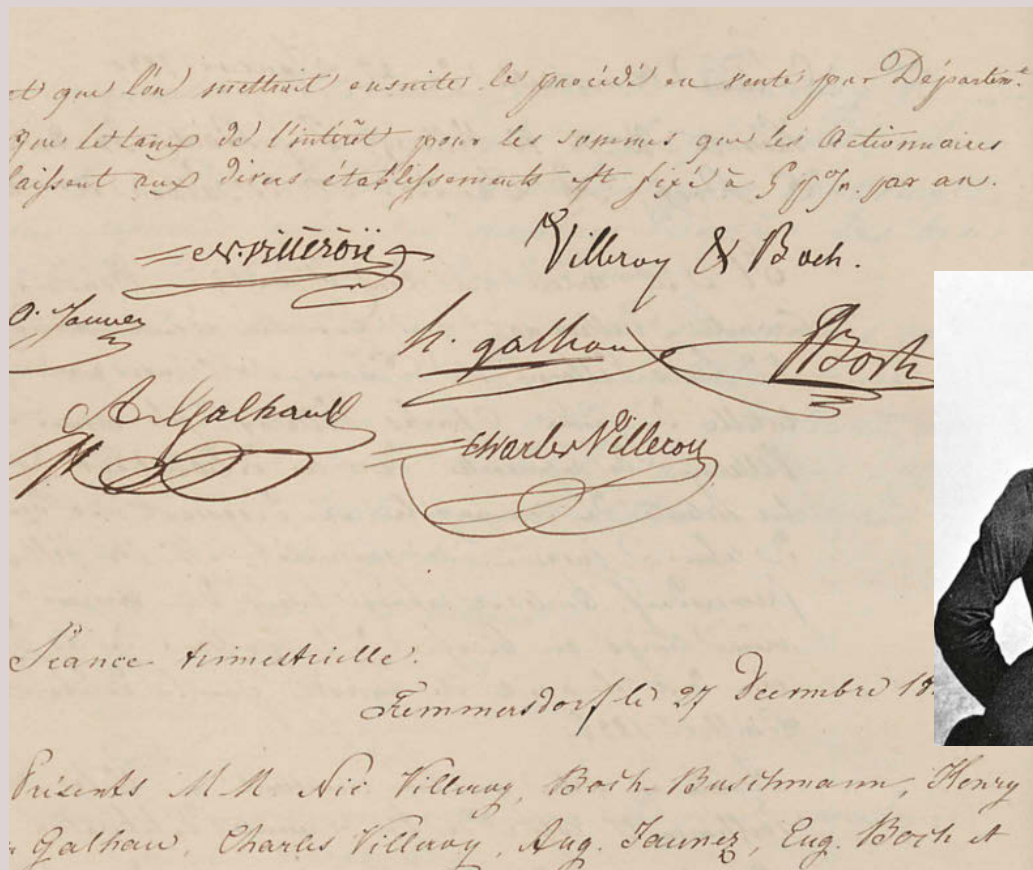 et que l'on mettrait ensuite le procédé en vente par Départem.t
que le taux de l'intérêt pour les sommes que les Actionnaires
laissent aux divers établissements est fixé à 5 p% par an.
N. Villeroy Villeroy & Boch.
Jaunez h. galhau Boch
A. Galhau Charles Villeroy
Séance trimestrielle.
Fremmersdorf le 27 Decembre 18
Présents MM Nic Villeroy, Boch-Buschmann, Henry
Galhau, Charles Villeroy, Aug. Jaunez, Eug. Boch et